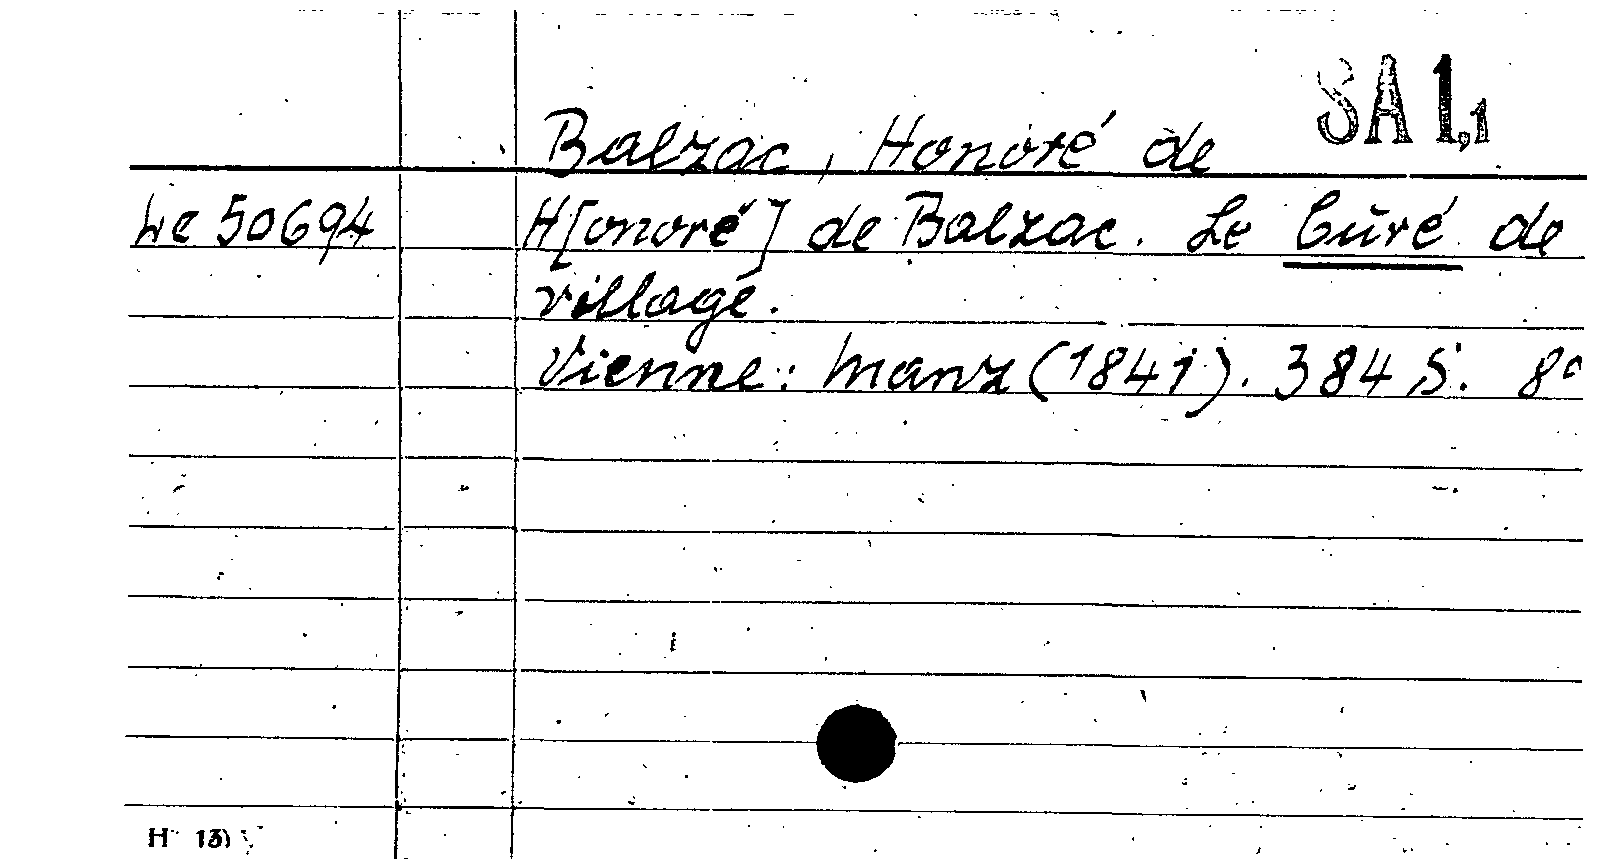 SA 1,1
Balzac, Honoré de
We 50694
H[onoré] de Balzac. Le Curé de
village.
Vienne: Manz (1841). 384 S. 8°